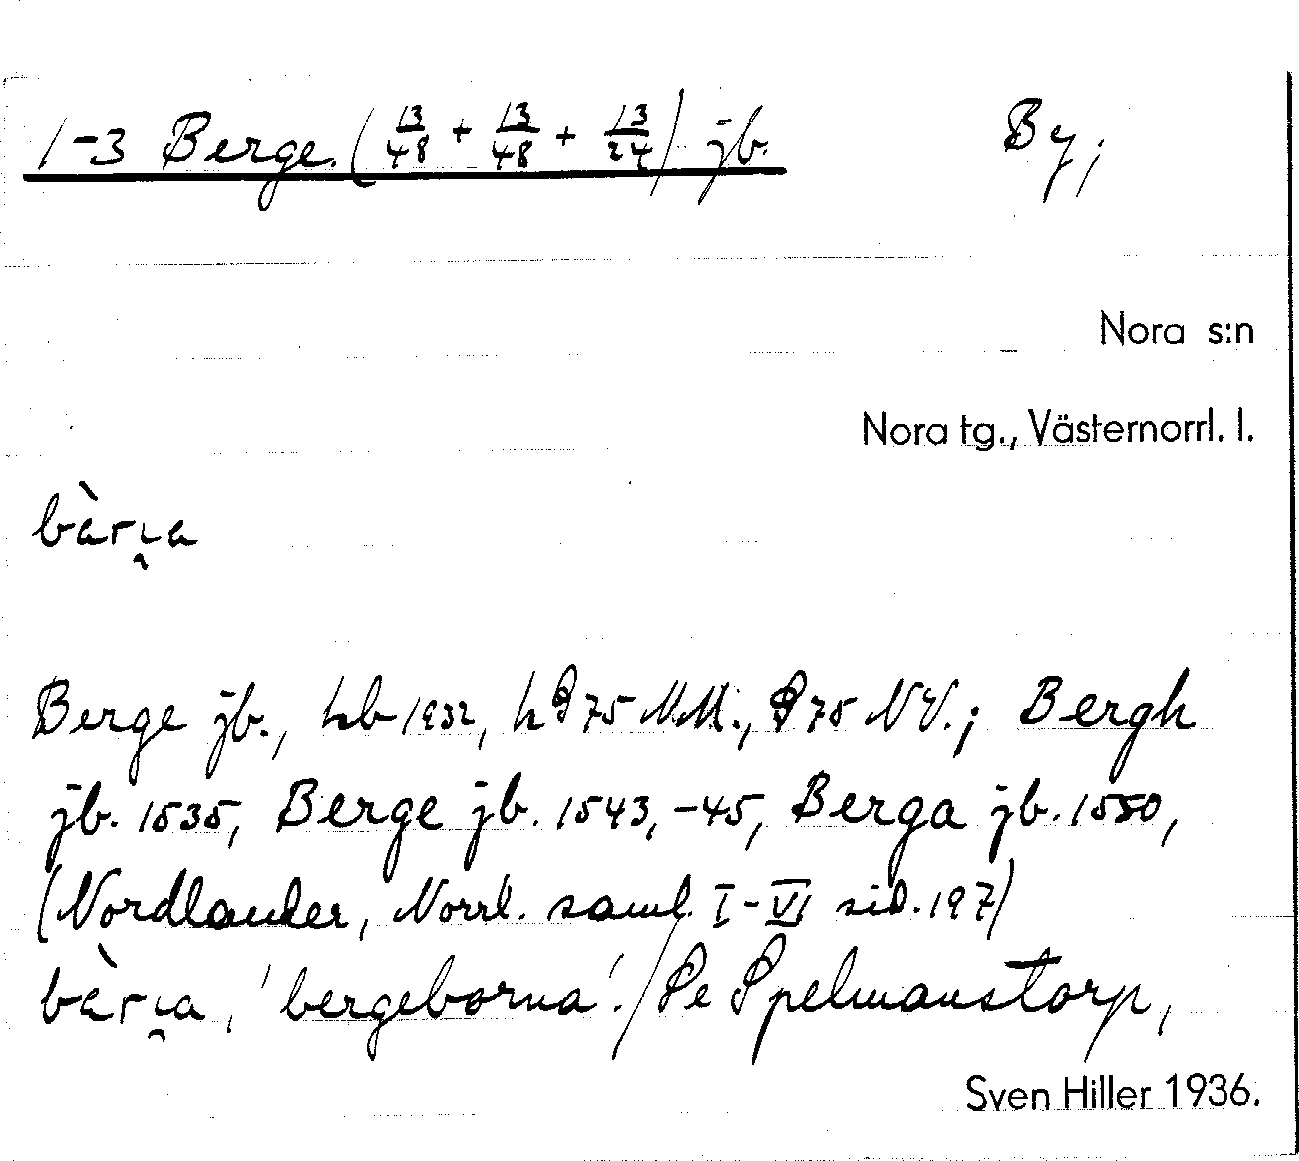 1-3 Berge. (13/48 + 13/48 + 13/24) jb. By,
Nora s:n
Nora tg., Västernorrl. l.
bὰrı̯a
Berge jb., hb 1932, h 75 N.M., 75 NV.; Bergh
jb. 1535, Berge jb. 1543, -45, Berga jb. 1550,
(Nordlander, Norrl. saml. I-VI sid. 197)
bὰrı̯a, 'bergeborna'. / Se Spelmanstorp,
Sven Hiller 1936.